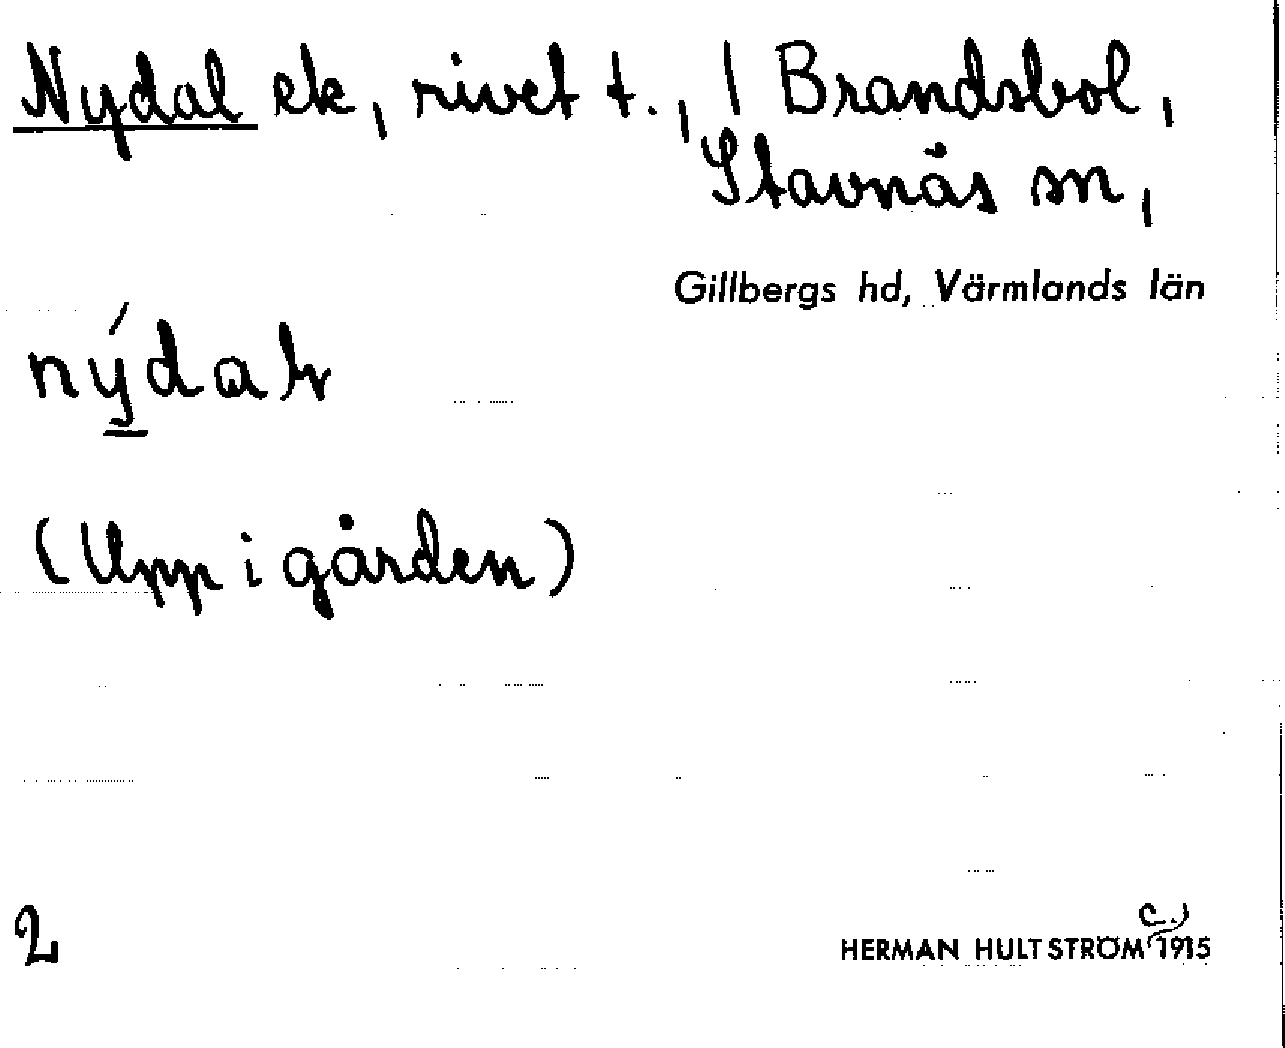 Nydal ek, rivet t., / Brandsbol,
Stavnäs sn,
Gillbergs hd, Värmlands län
nýdal
(Upp i gården)
2
HERMAN HULTSTRÖM (c.) 1915